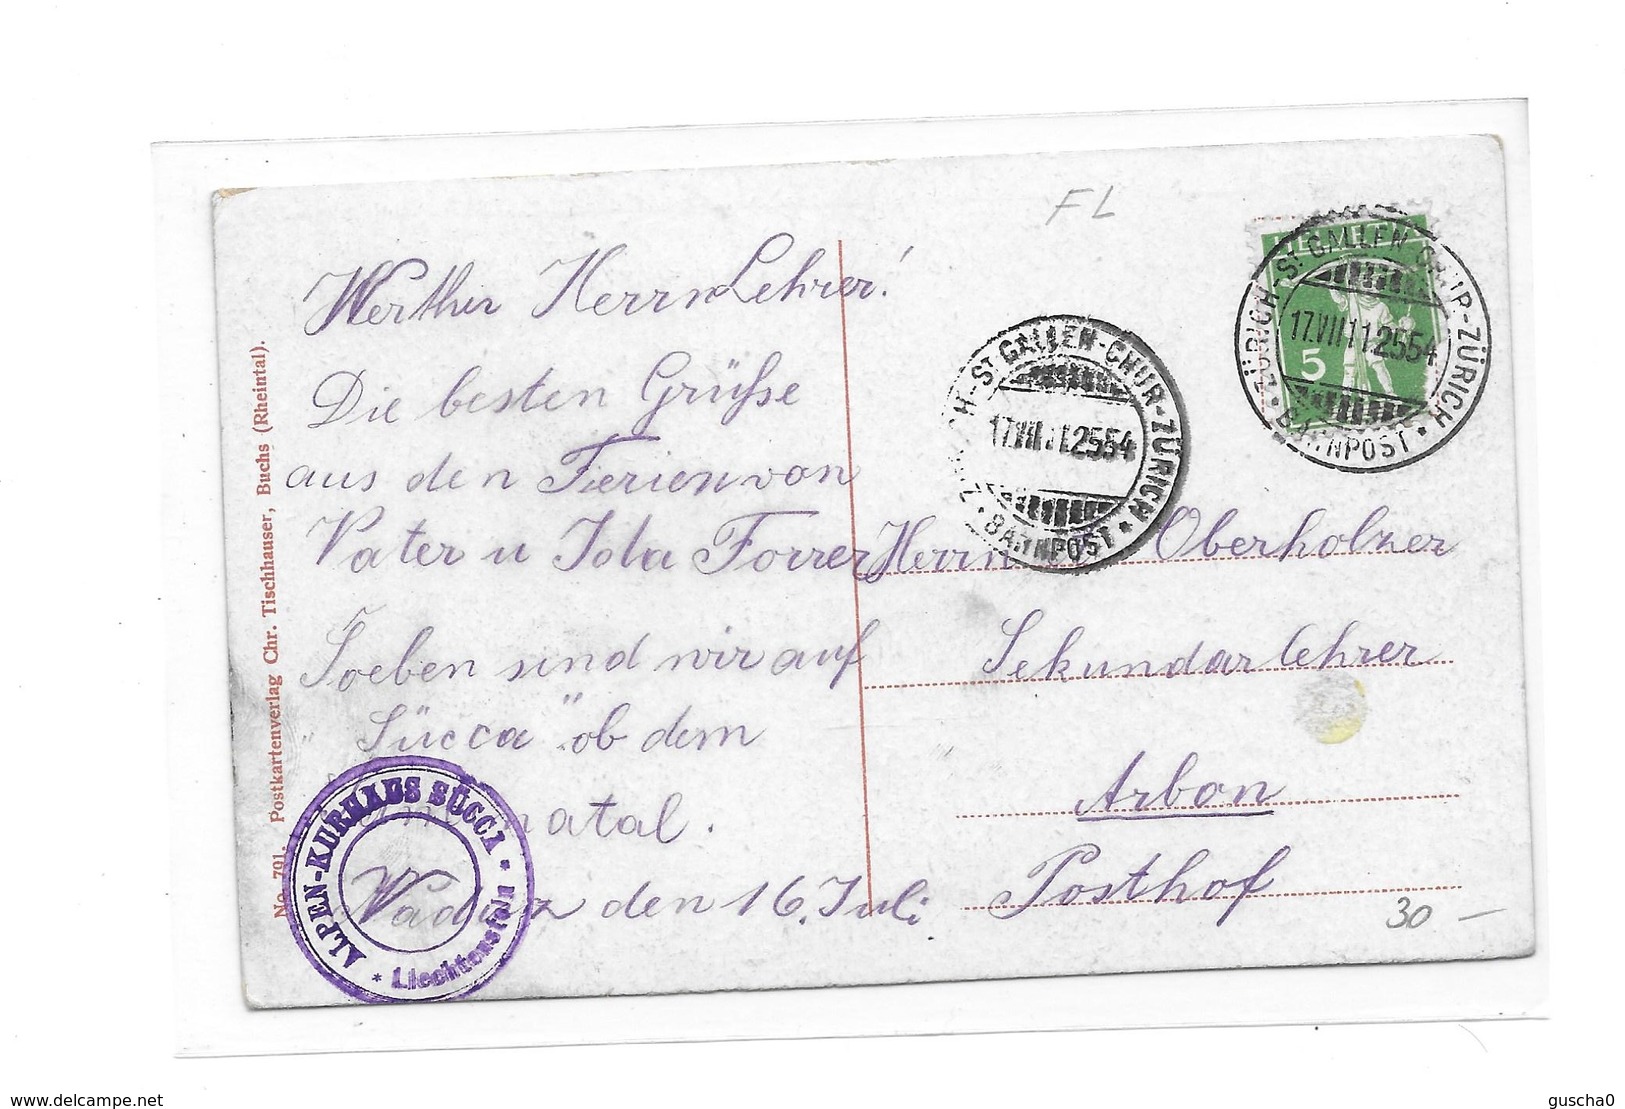 FL
Werther Herrn Lehrer!
Die besten Grüsse
aus den Ferien von
Vater u Ida Forrer
Soeben sind wir auf
„Sücca" ob dem
Vaduz den 16. Juli
Herrn Oberholzer
Sekundarlehrer
Arbon
Posthof
30 —
No. 791. Postkartenverlag Chr. Tischhauser, Buchs (Rheintal).
ALPEN-KURHAUS SÜCCA
* Liechtenstein *
ZÜRICH-St GALLEN-CHUR-ZÜRICH
17.VII.11.2554
* BAHNPOST *
HELVETIA
5
ZÜRICH-St GALLEN-CHUR-ZÜRICH
17.VII.11.2554
BAHNPOST *
www.delcampe.net
guscha0